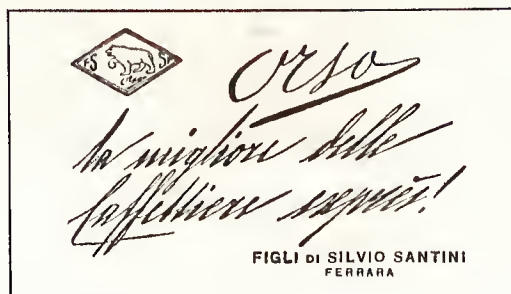 FS SF
Orso
la migliore delle
Caffettiere exprès!
FIGLI DI SILVIO SANTINI
FERRARA